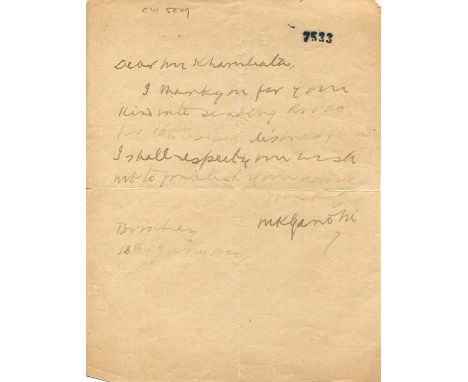 CW 5009
7533
Dear Mr Khambata,
I thank you for your
kind note sending Rs
for the distress fund.
I shall respect your wish
not to publish your name
Yours
MKGandhi
Bombay
18th